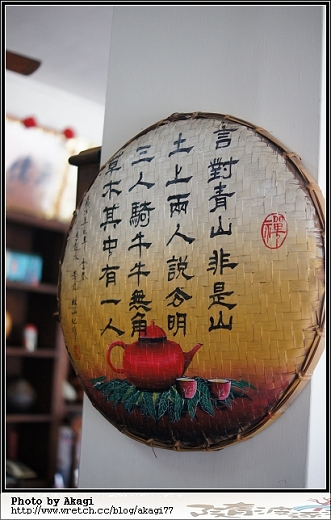 言對青山非是山
土上兩人說分明
三人騎牛牛無角
草木其中有一人
禪
Photo by Akagi
http://www.wretch.cc/blog/akagi77